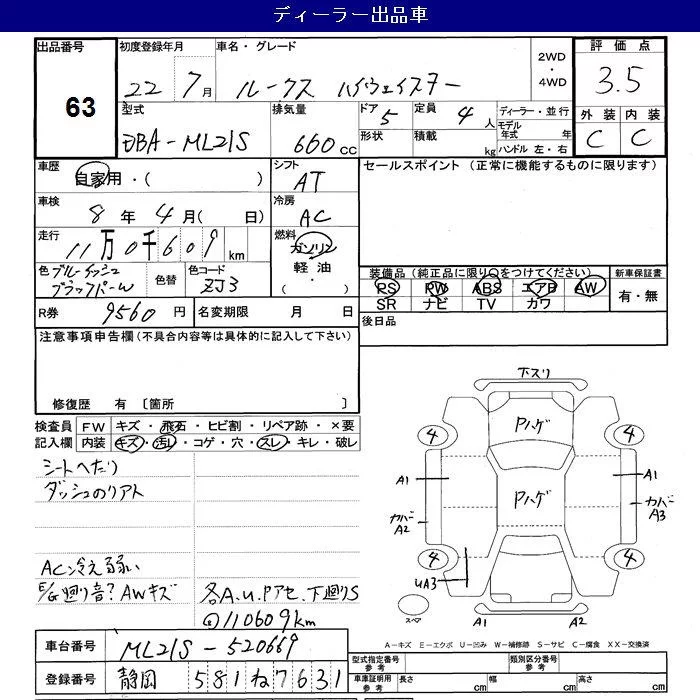 ディーラー出品車
出品番号 初度登録年月 車名・グレード 評価点
63
22 7月 ルークス ハイウェイスター 2WD・4WD 3.5
型式 排気量 ドア 定員 ディーラー・並行 外装 内装
DBA-ML21S 660cc 5 4人 モデル年式 年 C C
形状 積載 kg ハンドル 左・右
車歴 自家用・( ) シフト AT セールスポイント (正常に機能するものに限ります)
車検 8年 4月( 日) 冷房 AC
走行 11万0千609km 燃料 ガソリン 軽油・( )
色 ブルーイッシュブラックパール 色替 色コード ZJ3
装備品(純正品に限り○をつけてください) 新車保証書
PS PW ABS エアB AW 有・無
SR ナビ TV カワ
R券 9560円 名変期限 月 日 後日品
注意事項申告欄(不具合内容等は具体的に記入して下さい)
修復歴 有 〔箇所 〕
検査員 FW キズ・飛石・ヒビ割・リペア跡・×要
記入欄 内装 キズ・汚レ・コゲ・穴・スレ・キレ・破レ
シートヘたり
ダッシュのリアト
AC冷え弱い
E/G廻り音? AWキズ
各A.U.Pアセ.下廻りS
◎110609km
下スリ
Pハゲ
4 4
A1 Pハゲ A1
カバーA2 カバーA3
4 4
UA3
スペア A1 A2
A-キズ E-エクボ U-凹み W-補修跡 S-サビ C-腐食 XX-交換済
車台番号 ML21S-520669
型式指定番号 参考 類別区分番号 参考
登録番号 静岡 581 ね 7631
車庫証明用 参考 長さ cm 幅 cm 高さ cm